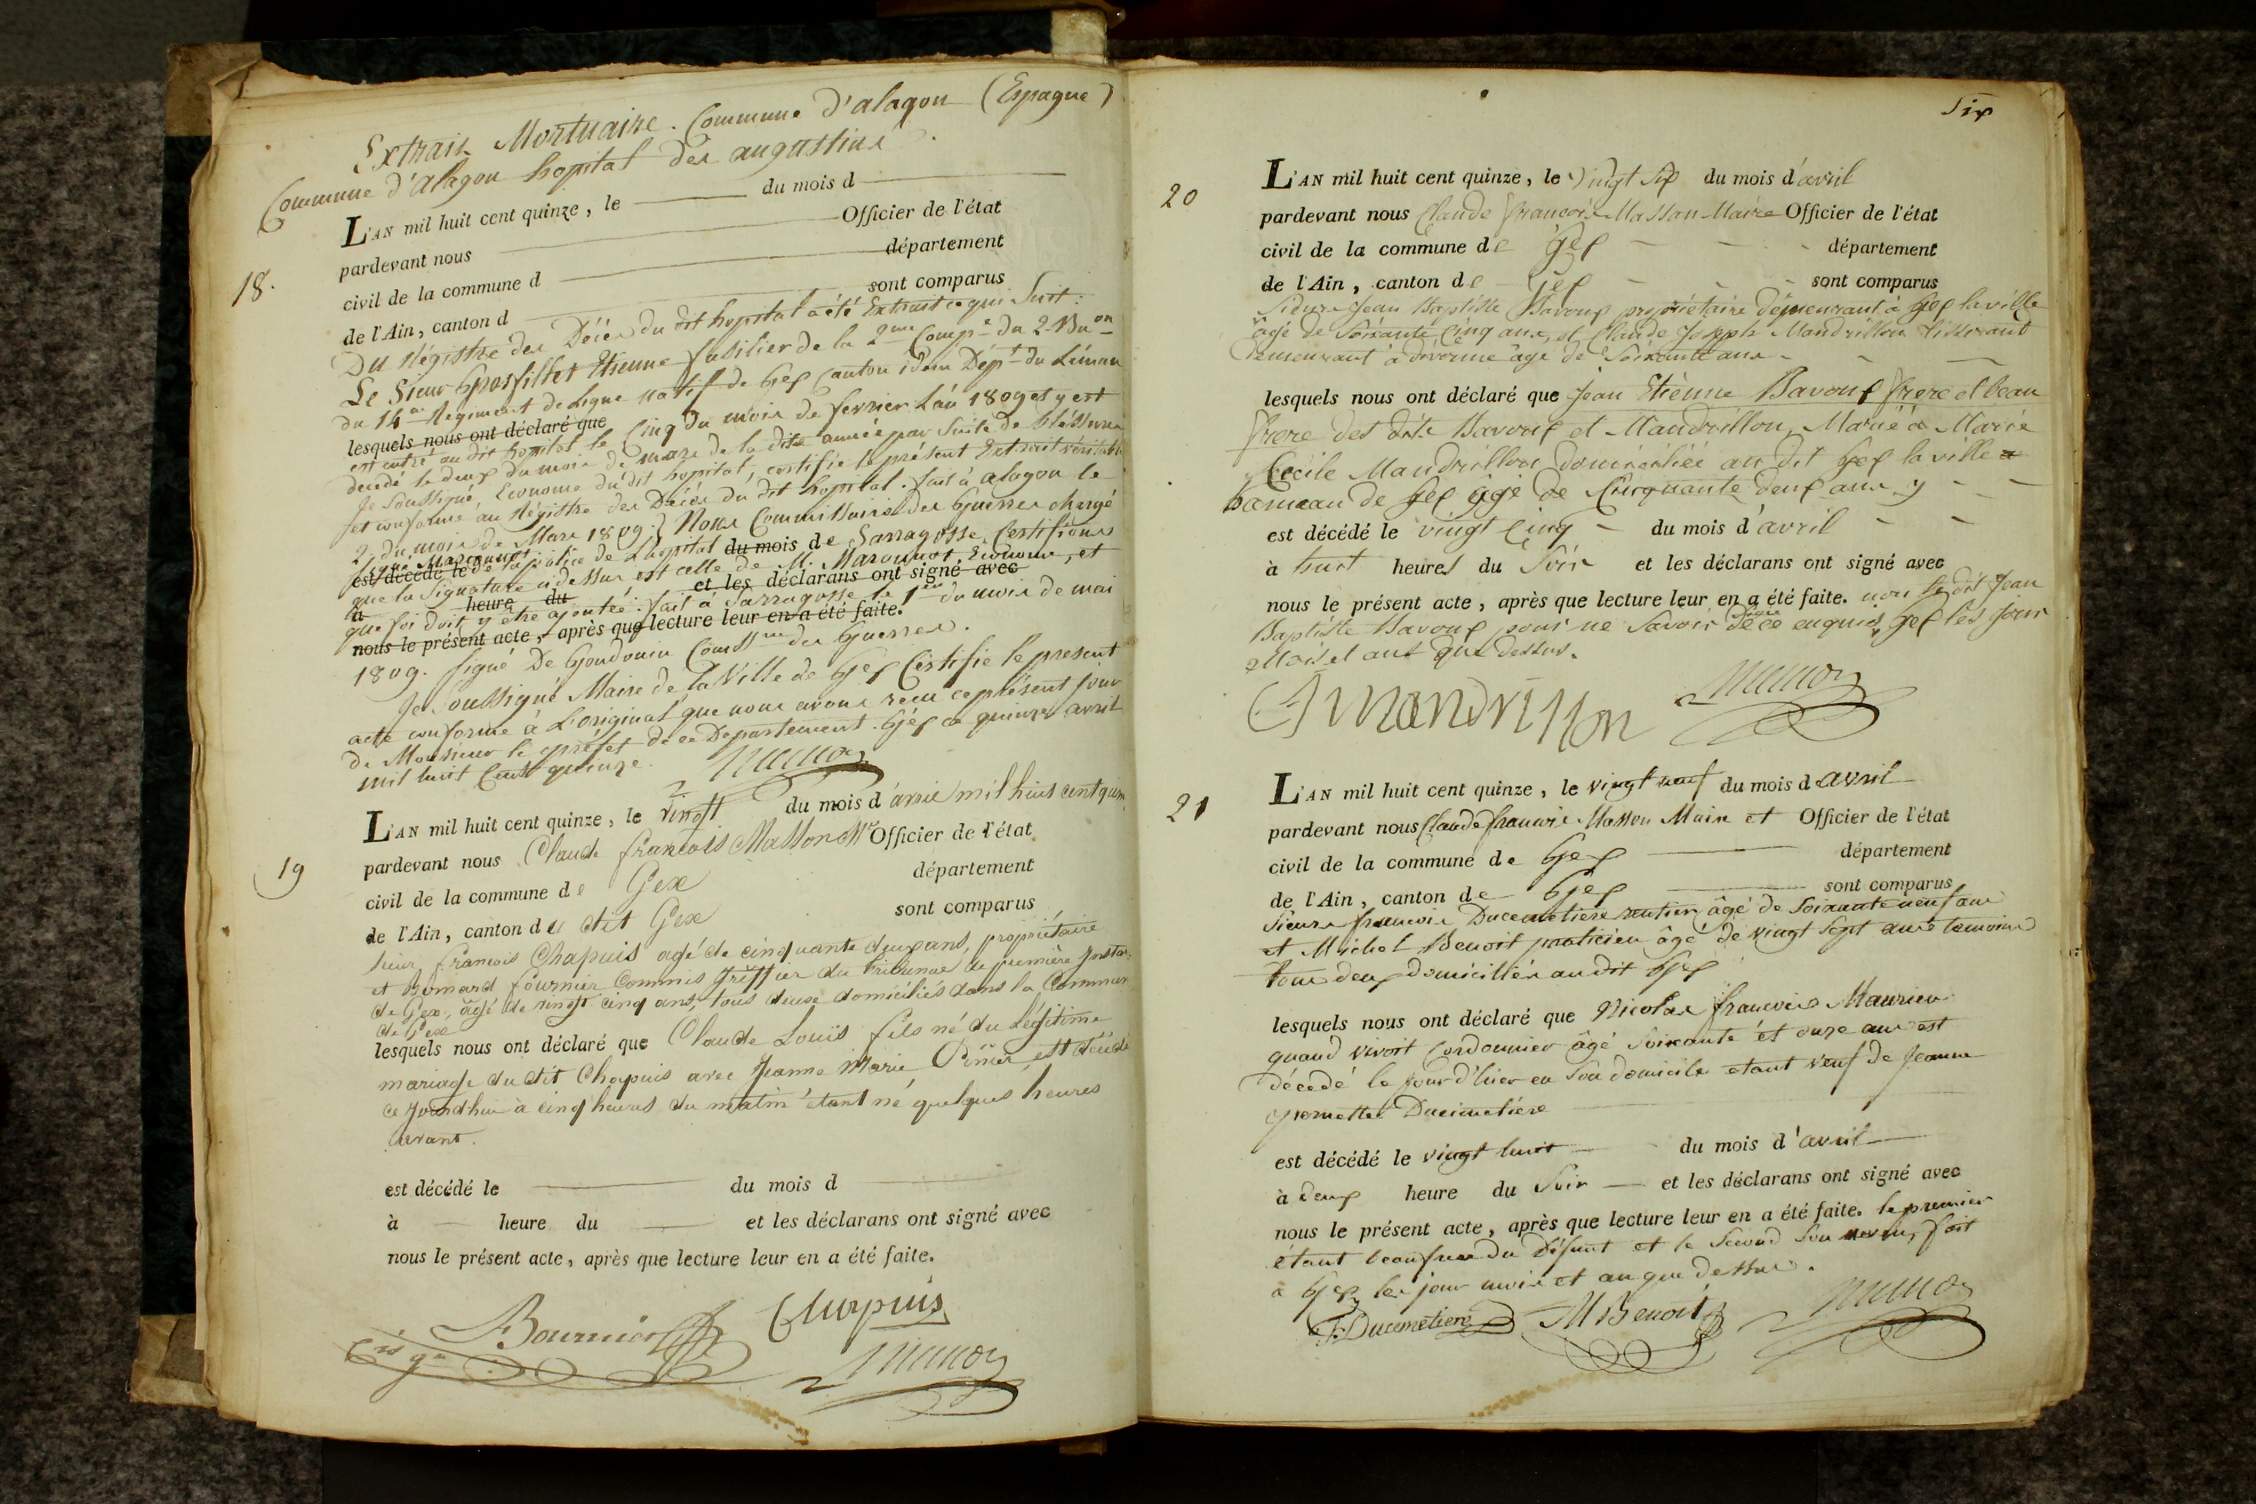 Extrait Mortuaire. Commune d'alagon (Espagne)
Commune d'alagon hopital des augustins.
18.
L'AN mil huit cent quinze, le du mois d
pardevant nous Officier de l'état
civil de la commune d département
de l'Ain, canton d sont comparus
Du Régistre des Décés du dit hopital a été Extrait ce qui Suit:
Le Sieur Grosfillet Etienne fusilier de la 2me Compe du 2e Baon
du 14e Regiment de Ligne natif de Gex Canton idem Dépt du Léman
lesquels nous ont déclaré que
est entré au dit hopital le Cinq du mois de fevrier L'an 1809 et y est
decedé le deux du mois de mars de la dite année par Suite de bléssures
Je Soussigné, Econome du dit hopital, certifie le présent Extrait véritable
et conforme au Régistre des Décés du dit hopital. fait à alagon le
2 du mois de Mars 1809. Nous Commissaire des Guerres chargé
signé
est décédé le de la police de L'hopital du mois de Sarragosse, Certifions
que la Signature ci dessus est celle de M. Econome, et
à heure du et les déclarans ont signé avec
que foi doit y etre ajoutée. fait à Sarragosse le 1er du mois de mai
nous le présent acte, après que lecture leur en a été faite.
1809. signé De Goudouin Commre des Guerres.
Je Soussigné Maire de la Ville de Gex Certifie le present
acte conforme à L'original que nous avons recu ce présent jour
de Monsieur le préfet de ce Departement. Gex ce quinze avril
mil huit Cent quinze.
19
L'AN mil huit cent quinze, le vingt du mois d'avril mil huit cent quinze
pardevant nous Claude francois Masson Mre Officier de l'état
civil de la commune de Gex département
de l'Ain, canton du dit Gex sont comparus
sieur francois Chapuis agé de cinquante deux ans, propriétaire
et Bernard fournier Commis Greffier du tribunal de première Instance
de Gex, âgé de vingt cinq ans, tous deux domiciliés dans la Commune
de Gex
lesquels nous ont déclaré que Claude Louis fils né du Légitime
mariage du dit Chapuis avec Jeanne Marie est décédé
ce jourd'hui à cinq heures du matin étant né quelques heures
avant.
est décédé le du mois d
à heure du et les déclarans ont signé avec
nous le présent acte, après que lecture leur en a été faite.
Chapuis
Six
20
L'AN mil huit cent quinze, le Vingt Six du mois d'avril
pardevant nous Claude francois Masson Maire Officier de l'état
civil de la commune de Gex département
de l'Ain, canton de Gex sont comparus
Sieurs Jean Baptiste Bavoux propriétaire demeurant à Gex la ville
âgé de Soixante Cinq ans, et Claude Joseph Mandrillon tisserant
demeurant à divonne âgé de Soixante ans
lesquels nous ont déclaré que Jean Etiènne Bavoux frere et beau
frere des dits Bavoux et Mandrillon, Marié à Marie
Cecile Mandrillon domiciliée au dit Gex la ville
hameau de Gex âgé de Cinquante deux ans y
est décédé le vingt Cinq du mois d'avril
à huit heures du Soir et les déclarans ont signé avec
nous le présent acte, après que lecture leur en a été faite. non le dit Jean
Baptiste Bavoux pour ne Savoir de ce enquis, Gex les jour
Mois et ans que dessus.
CJ mandrillon
21
L'AN mil huit cent quinze, le vingt neuf du mois d avril
pardevant nous Claude francois Masson Maire et Officier de l'état
civil de la commune de Gex département
de l'Ain, canton de Gex sont comparus
Sieurs francois Ducimetiere rentier âgé de Soixante neuf ans
et Michel Benoit praticien âgé de vingt Sept ans témoins
tous deux domiciliés au dit Gex
lesquels nous ont déclaré que Nicolas francois Maurier
quand vivoit Cordonnier âgé Soixante et onze ans est
décedé le jour d'hier en Son domicile etant veuf de Jeanne
pernette Ducimetiere
est décédé le vingt huit du mois d'avril
à deux heure du Soir et les déclarans ont signé avec
nous le présent acte, après que lecture leur en a été faite. le premier
étant beaufrere du Défunt et le Second Son neveu, fait
à Gex les jour mois et an que dessus.
F: Ducimetiere M Benoit